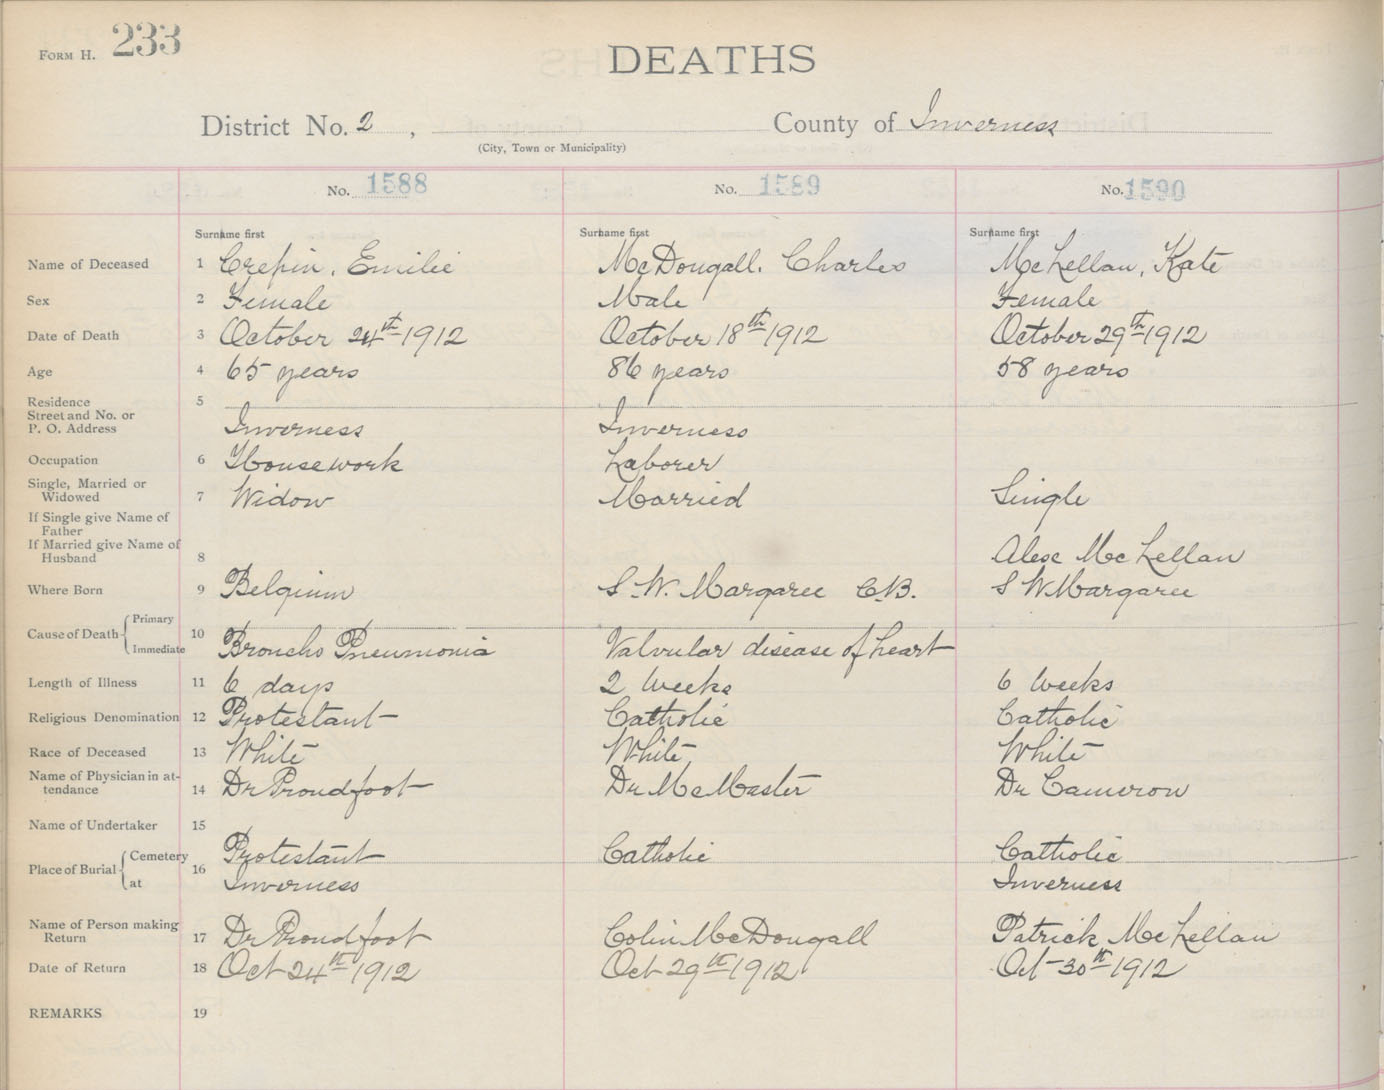 FORM H. 233
DEATHS
District No. 2 , County of Inverness
(City, Town or Municipality)
No. 1588 No. 1589 No. 1590
Surname first Surname first Surname first
Name of Deceased 1 Crepin, Emilie McDougall. Charles McLellan, Kate
Sex 2 Female Male Female
Date of Death 3 October 24th 1912 October 18th 1912 October 29th 1912
Age 4 65 years 86 years 58 years
Residence 5
Street and No. or
P. O. Address Inverness Inverness
Occupation 6 Housework Laborer
Single, Married or
Widowed 7 Widow Married Single
If Single give Name of
Father
If Married give Name of
Husband 8 Alex McLellan
Where Born 9 Belgium S. W. Margaree C.B. S W Margaree
Cause of Death Primary
10
Immediate Broncho Pneumonia Valvular disease of heart
Length of Illness 11 6 days 2 weeks 6 weeks
Religious Denomination 12 Protestant Catholic Catholic
Race of Deceased 13 White White White
Name of Physician in at-
tendance 14 Dr Proudfoot Dr McMaster Dr Cameron
Name of Undertaker 15
Place of Burial Cemetery 16 Protestant Catholic Catholic
at Inverness Inverness
Name of Person making
Return 17 Dr Proudfoot Colin McDougall Patrick McLellan
Date of Return 18 Oct 24th 1912 Oct 29th 1912 Oct 30th 1912
REMARKS 19